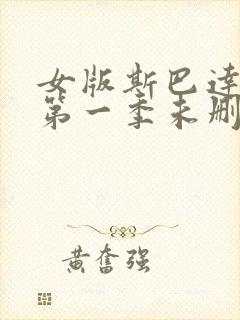 女版斯巴达
第一季未删
黄奋强